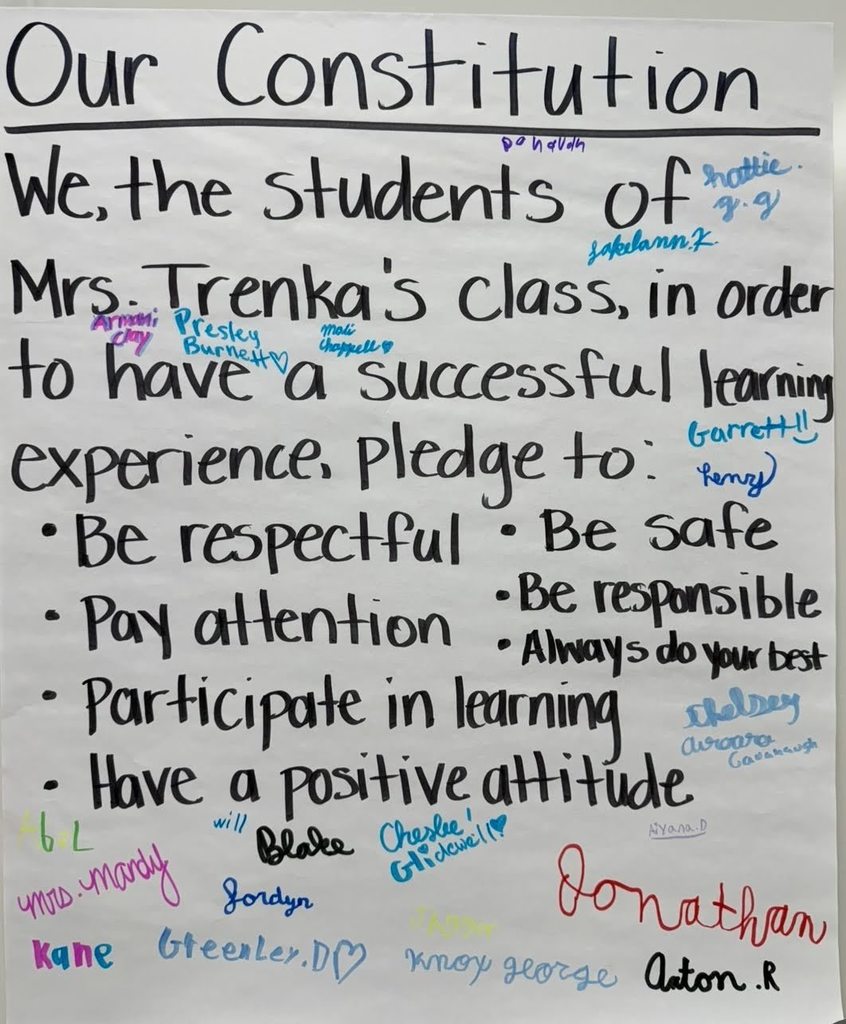 Our Constitution
Donavan
We, the students of
Hattie.
g.g
Jakelann.K.
Mrs. Trenka's class, in order
Armani
Clay
Presley
Burnett♡
Mali
Chappell♥
to have a successful learning
Garrett!!
experience, pledge to:
henry
• Be respectful • Be safe
• Pay attention • Be responsible
• Always do your best
• Participate in learning
Chelsey
Cavanaugh
• Have a positive attitude
Abel
will
Blake
Cheslee
Glidewell♥
Aiyana.D
Mrs. Mandy
Jordyn
Jonathan
Kane
Greenley.D♡
Knox george
Anton.R